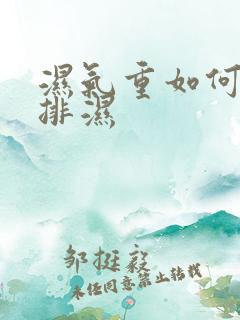 濕氣重如何
排濕
邹挺毅
未经同意禁止转载